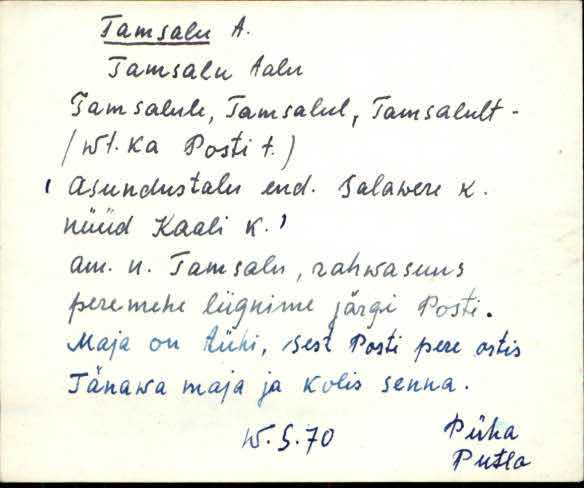 Tamsalu A.
Tamsalu Aalu
Tamsalule, Tamsalul, Tamsalult -
(wt. ka Posti t.)
' Asundustalu end. Salawere k.
nüüd Kaali k.'
am. n. Tamsalu, rahwasuus
peremehe liignime järgi Posti.
Maja on tühi, sest Posti pere ostis
Tänawa maja ja kolis senna.
W.S.70 Püha
Putla